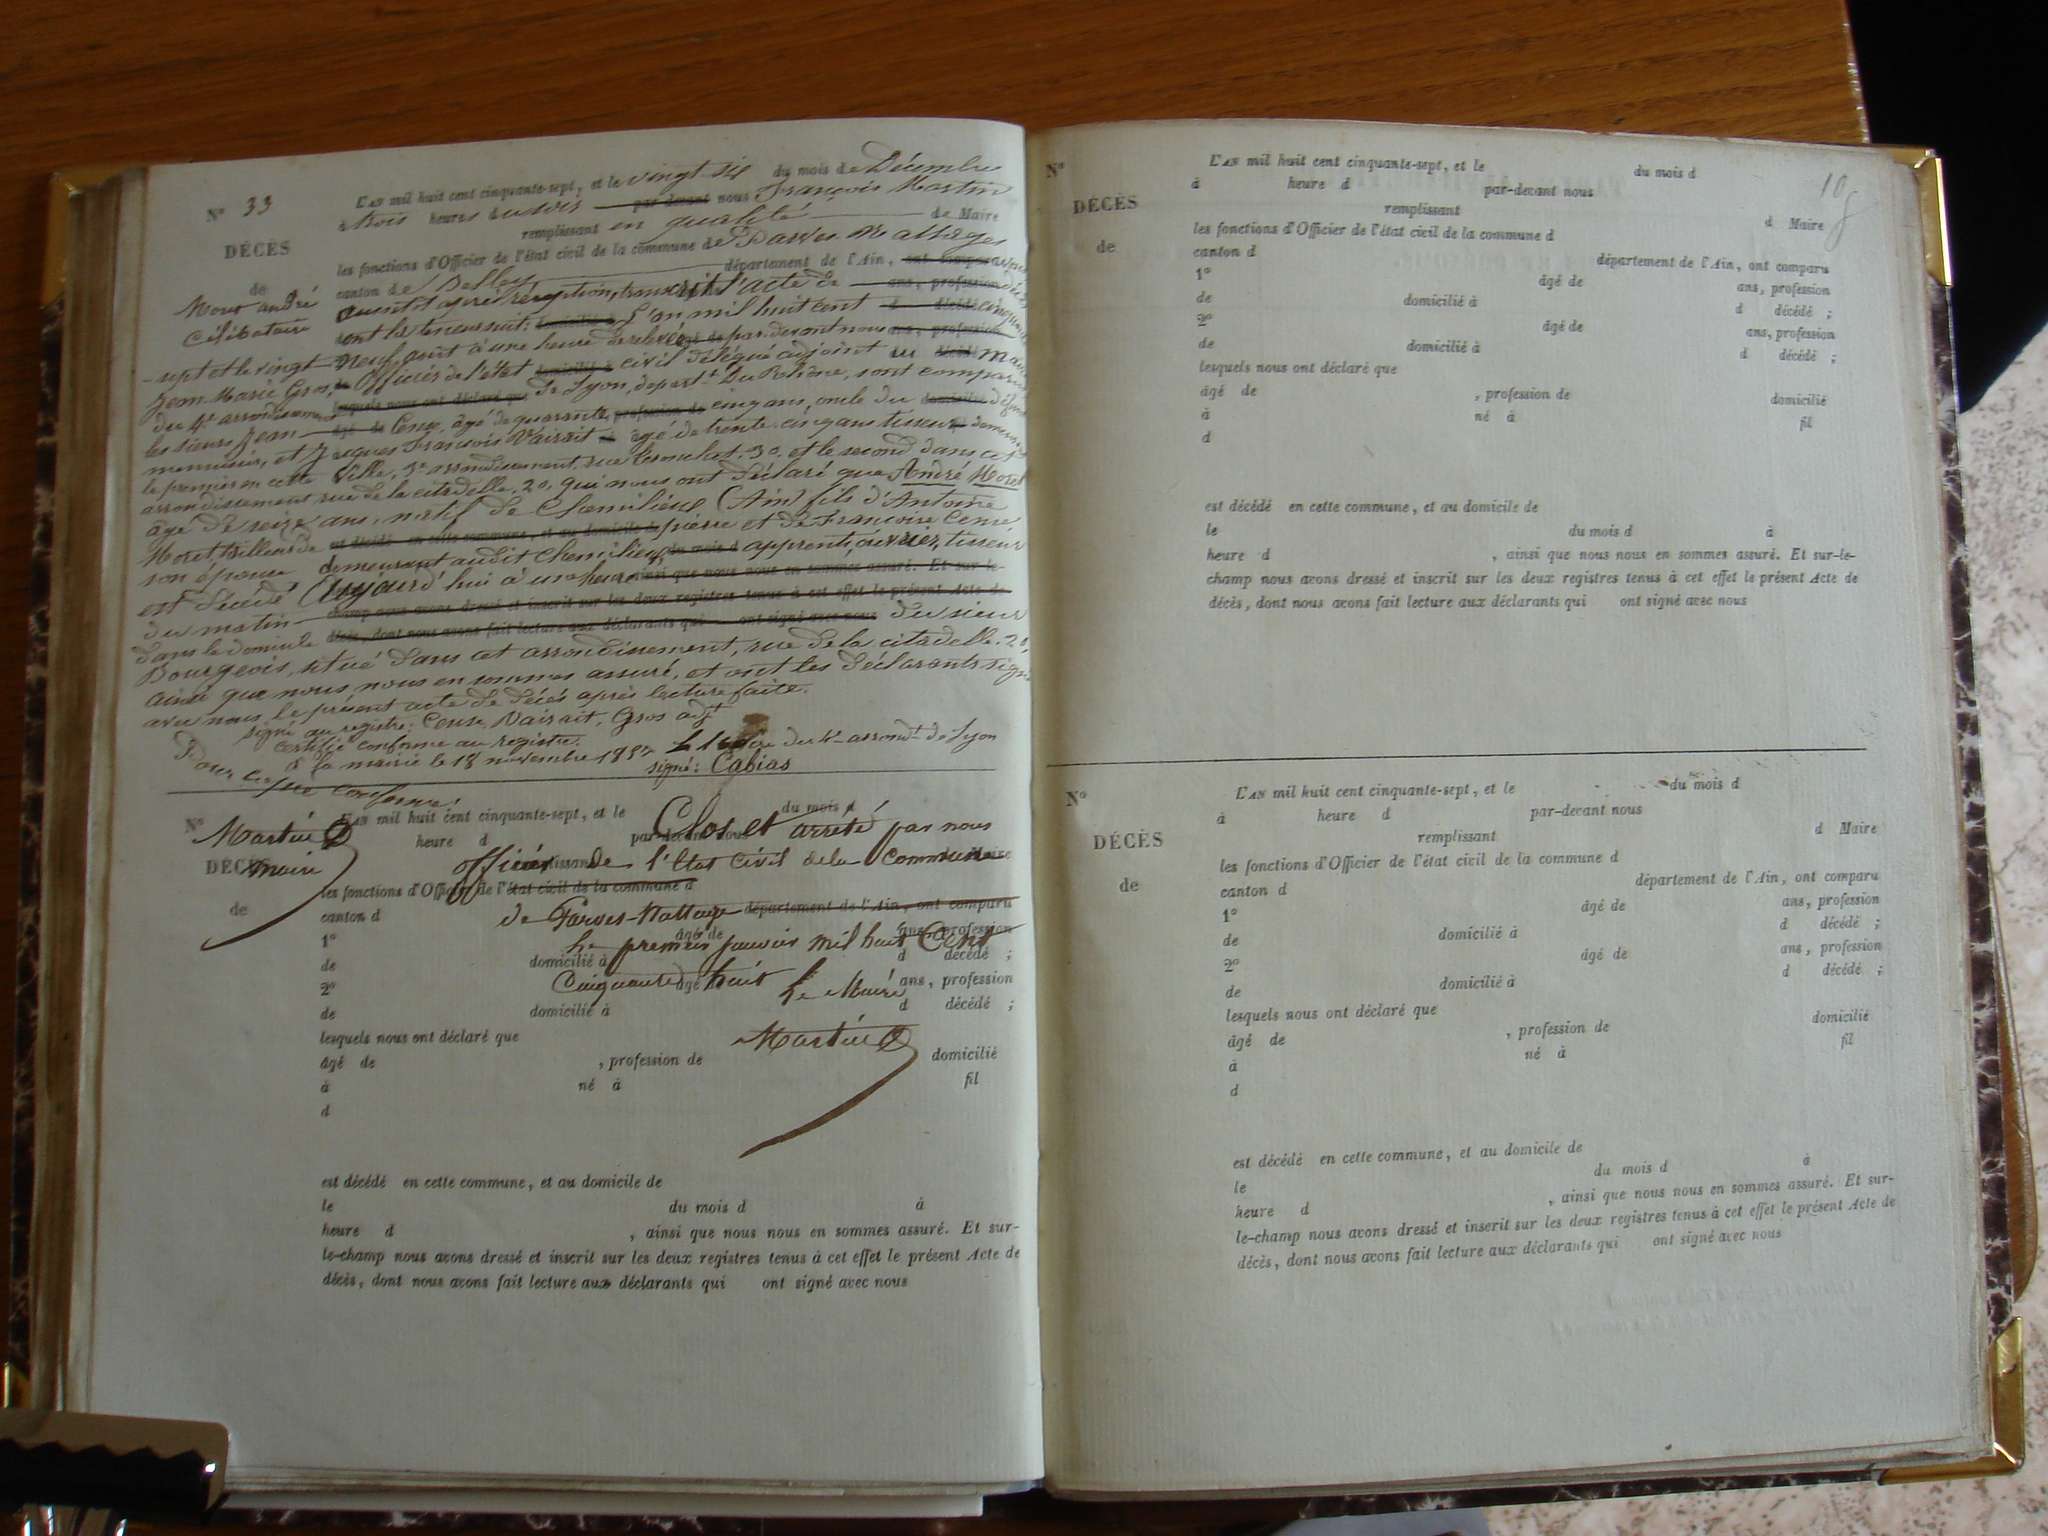 N° 33
DÉCÈS
de
Moret andré
Célibataire
L'AN mil huit cent cinquante-sept, et le vingt-six du mois de Décembre
à trois heures du soir par-devant nous François Martin
remplissant en qualité de Maire
les fonctions d'Officier de l'état civil de la commune de Parves
canton de Belley département de l'Ain,
avons après réception, transcrit l'acte de
dont la teneur suit: L'an mil huit cent
sept et le vingt-neuf août à une heure de relevée par-devant nous
Jean Marie Gros, Officier de l'état civil délégué adjoint
du 4e arrondissement de Lyon, départt du Rhône, sont comparus
les sieurs Jean Cense, âgé de quarante cinq ans, oncle du
menuisier, et Jacques François Vairait âgé de trente-cinq ans tisseur
le premier en cette Ville, arrondissement, rue 30, et le second dans cet
arrondissement rue de la citadelle, 20, qui nous ont déclaré que André Moret
âgé de seize ans, natif de Chemilieux (Ain) fils d'Antoine
Moret tailleur de pierre et de Francoise Cense,
son épouse demeurant audit Chemilieux, apprenti, ouvrier, tisseur
est décédé aujourd'hui à une heure
du matin
dans le domicile du sieur
Bourgeois, situé dans cet arrondissement, rue de la citadelle, 20,
ainsi que nous nous en sommes assuré, et ont les déclarants signé
avec nous le présent acte de décès après lecture faite.
signé au registre: Cense, Vairait, Gros adjt
certifié conforme au registre.
à la mairie le 18 novembre 1857 Le Maire du 4e arrondt de Lyon
signé: Cabias
Pour copie conforme
Martin
Maire
N°
DÉCÈS
de
L'AN mil huit cent cinquante-sept, et le du mois d
heure d par-devant nous
Clos et arrêté par nous
officier de l'Etat civil de la Commune
les fonctions d'Officier de l'état civil de la commune d
canton d département de l'Ain, ont comparu
de Parves-Nattage
1° âgé de ans, profession
le premier janvier mil huit Cent
de domicilié à d décédé ;
Cinquante huit Le Maire
2° âgé de ans, profession
de domicilié à d décédé ;
lesquels nous ont déclaré que
Martin
âgé de , profession de domicilié
à né à fil
d
est décédé en cette commune, et au domicile de
le du mois d à
heure d , ainsi que nous nous en sommes assuré. Et sur-
le-champ nous avons dressé et inscrit sur les deux registres tenus à cet effet le présent Acte de
décès, dont nous avons fait lecture aux déclarants qui ont signé avec nous
108
N°
DÉCÈS
de
L'AN mil huit cent cinquante-sept, et le du mois d
à heure d par-devant nous
remplissant d Maire
les fonctions d'Officier de l'état civil de la commune d
canton d département de l'Ain, ont comparu
1° âgé de ans, profession
de domicilié à d décédé ;
2° âgé de ans, profession
de domicilié à d décédé ;
lesquels nous ont déclaré que
âgé de , profession de domicilié
à né à fil
d
est décédé en cette commune, et au domicile de
le du mois d à
heure d , ainsi que nous nous en sommes assuré. Et sur-le-
champ nous avons dressé et inscrit sur les deux registres tenus à cet effet le présent Acte de
décès, dont nous avons fait lecture aux déclarants qui ont signé avec nous
N°
DÉCÈS
de
L'AN mil huit cent cinquante-sept, et le du mois d
à heure d par-devant nous
remplissant d Maire
les fonctions d'Officier de l'état civil de la commune d
canton d département de l'Ain, ont comparu
1° âgé de ans, profession
de domicilié à d décédé ;
2° âgé de ans, profession
de domicilié à d décédé ;
lesquels nous ont déclaré que
âgé de , profession de domicilié
à né à fil
d
est décédé en cette commune, et au domicile de
le du mois d à
heure d , ainsi que nous nous en sommes assuré. Et sur-
le-champ nous avons dressé et inscrit sur les deux registres tenus à cet effet le présent Acte de
décès, dont nous avons fait lecture aux déclarants qui ont signé avec nous